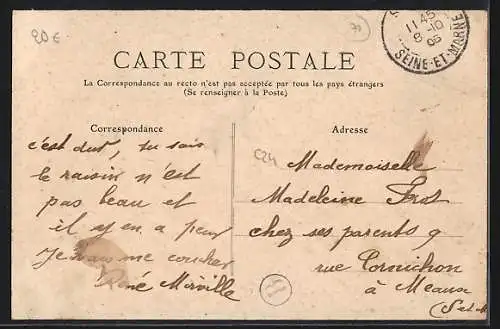 20 €
11 45
8 -10
06
SEINE-ET-MARNE
CARTE POSTALE
La Correspondance au recto n'est pas acceptée par tous les pays étrangers
(Se renseigner à la Poste)
Correspondance
c'est dut, tu sais
le raisin n'est
pas beau et
il y en a peu
Je vais me coucher
René Morville
Adresse
Mademoiselle
Madeleine Prot
chez ses parents 9
rue Cornichon
à Meaux
(S et M